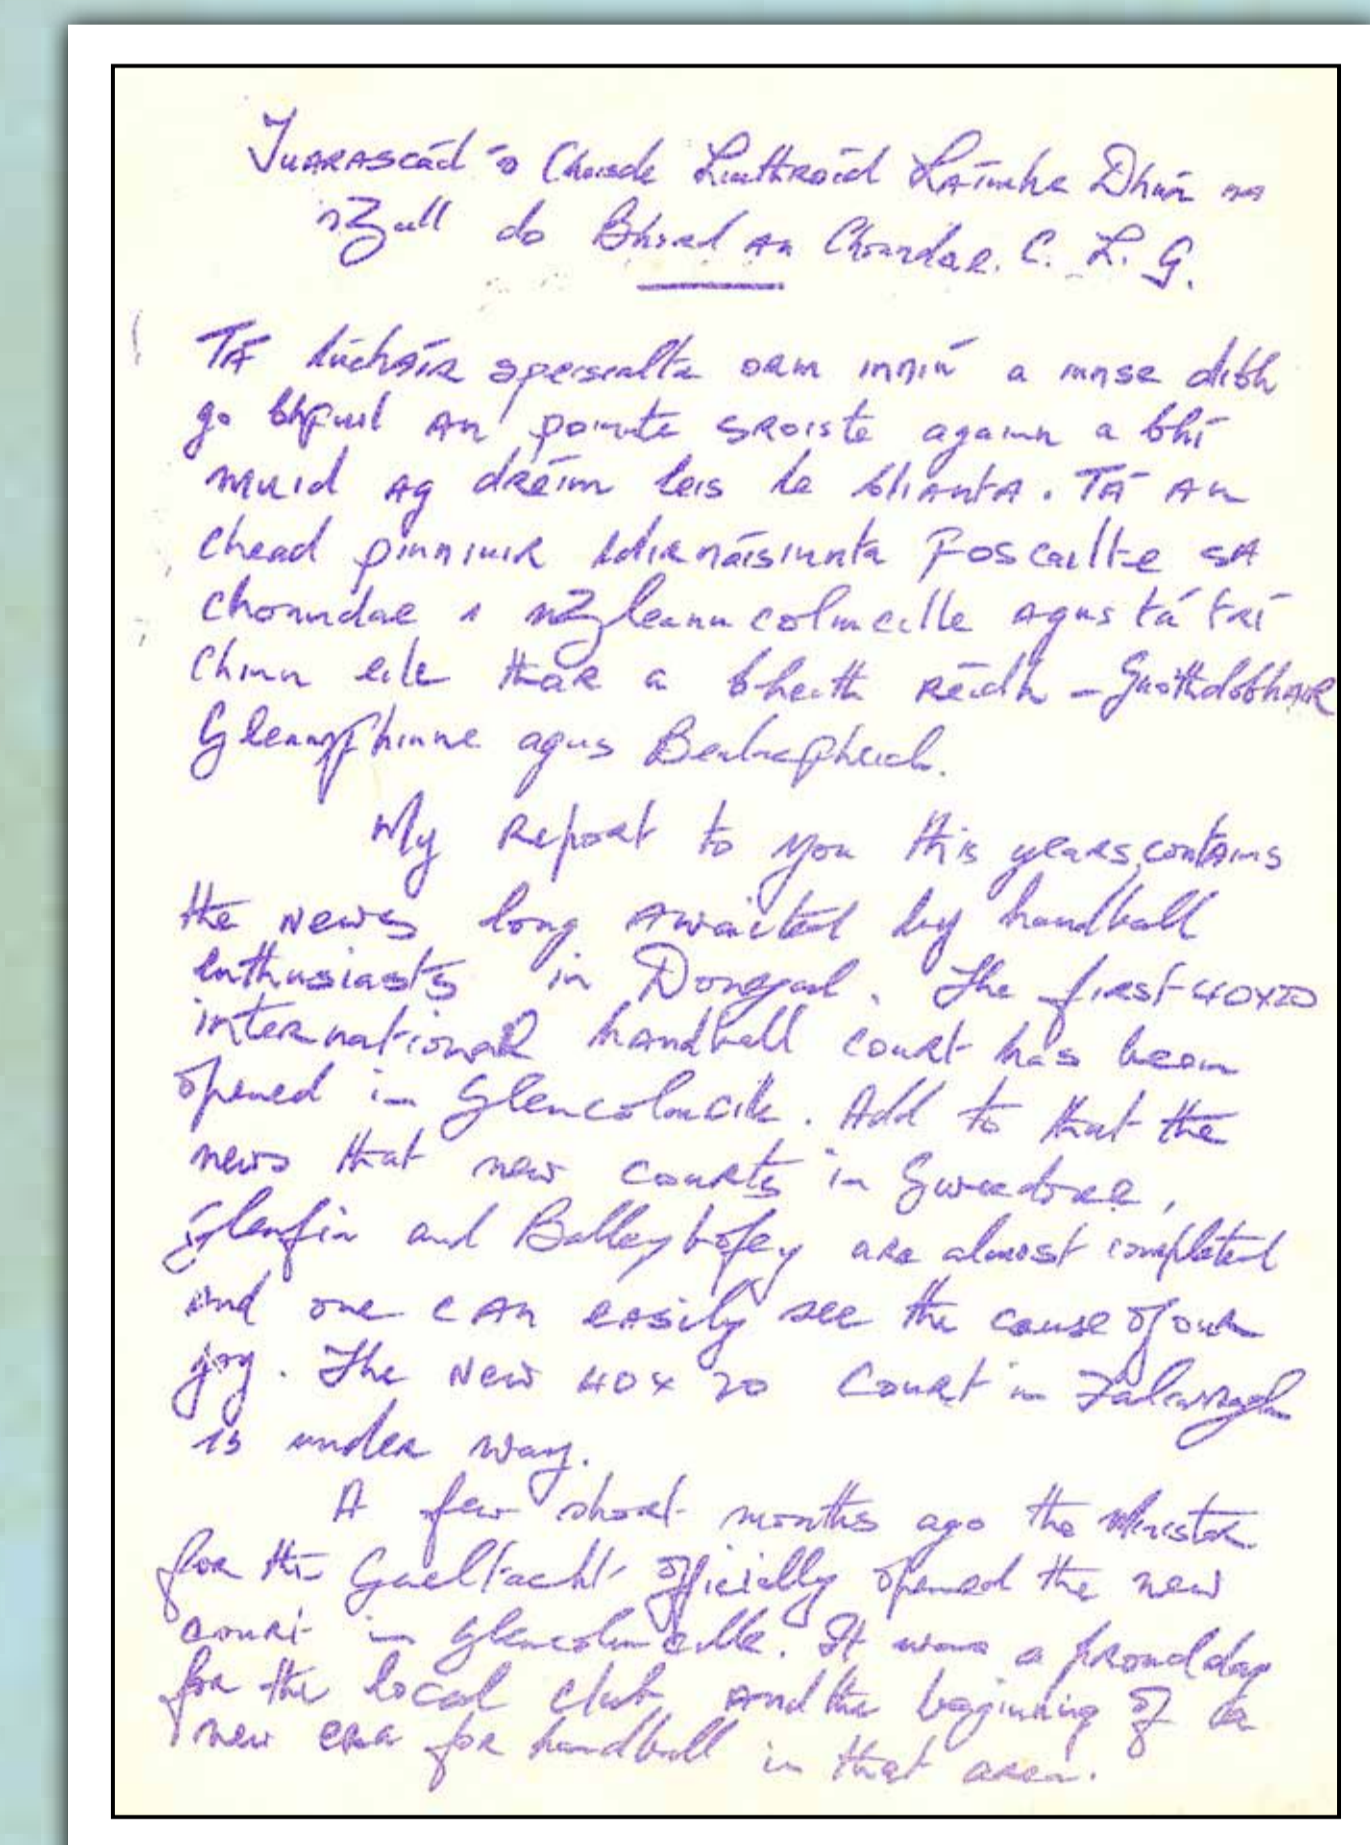 Tuarascáil ó Choiste Liathróid Láimhe Dhún na
nGall do Bhord an Chondae. C. L. G.
Tá lúcháir speisialta orm inniú a innse dibh
go bhfuil an pointe sroiste againn a bhí
muid ag dréim leis le blianta. Tá an
chead pinniuir idirnáisiunta foscailte sa
chonndae i nGleann colmcille agus tá trí
chinn eile thar a bheith réidh - Gaothdobhair
Gleannfhinne agus Bealafheich.
My report to you this years, contains
the news long awaited by handball
enthusiasts in Donegal. The first 40x20
international handball court has been
opened in Glencolmcille. Add to that the
news that new courts in Gweedore,
Glenfin and Balleybofey are almost completed
and one can easily see the cause of our
joy. The new 40 x 20 court in
is under way.
A few short months ago the Minister
for the Gaeltacht officially opened the new
court in Glencolmcille. It was a proud day
for the local club, and the beginning of a
new era for handball in that area.